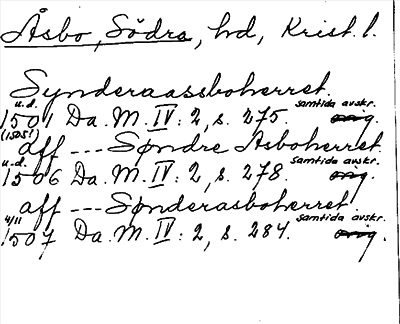 Åsbo, Södra, hd, Krist. l.
Synderaassboherret.
u.d. samtida avskr.
1501 Da. M. IV: 2, s. 275. orig.
(1505!)
aff --- Søndre Asboherret.
u.d. samtida avskr.
1506 Da. M. IV: 2, s. 278. orig.
aff --- Sønderasboherret.
4/11 samtida avskr.
1507 Da. M. IV: 2, s. 284. orig.